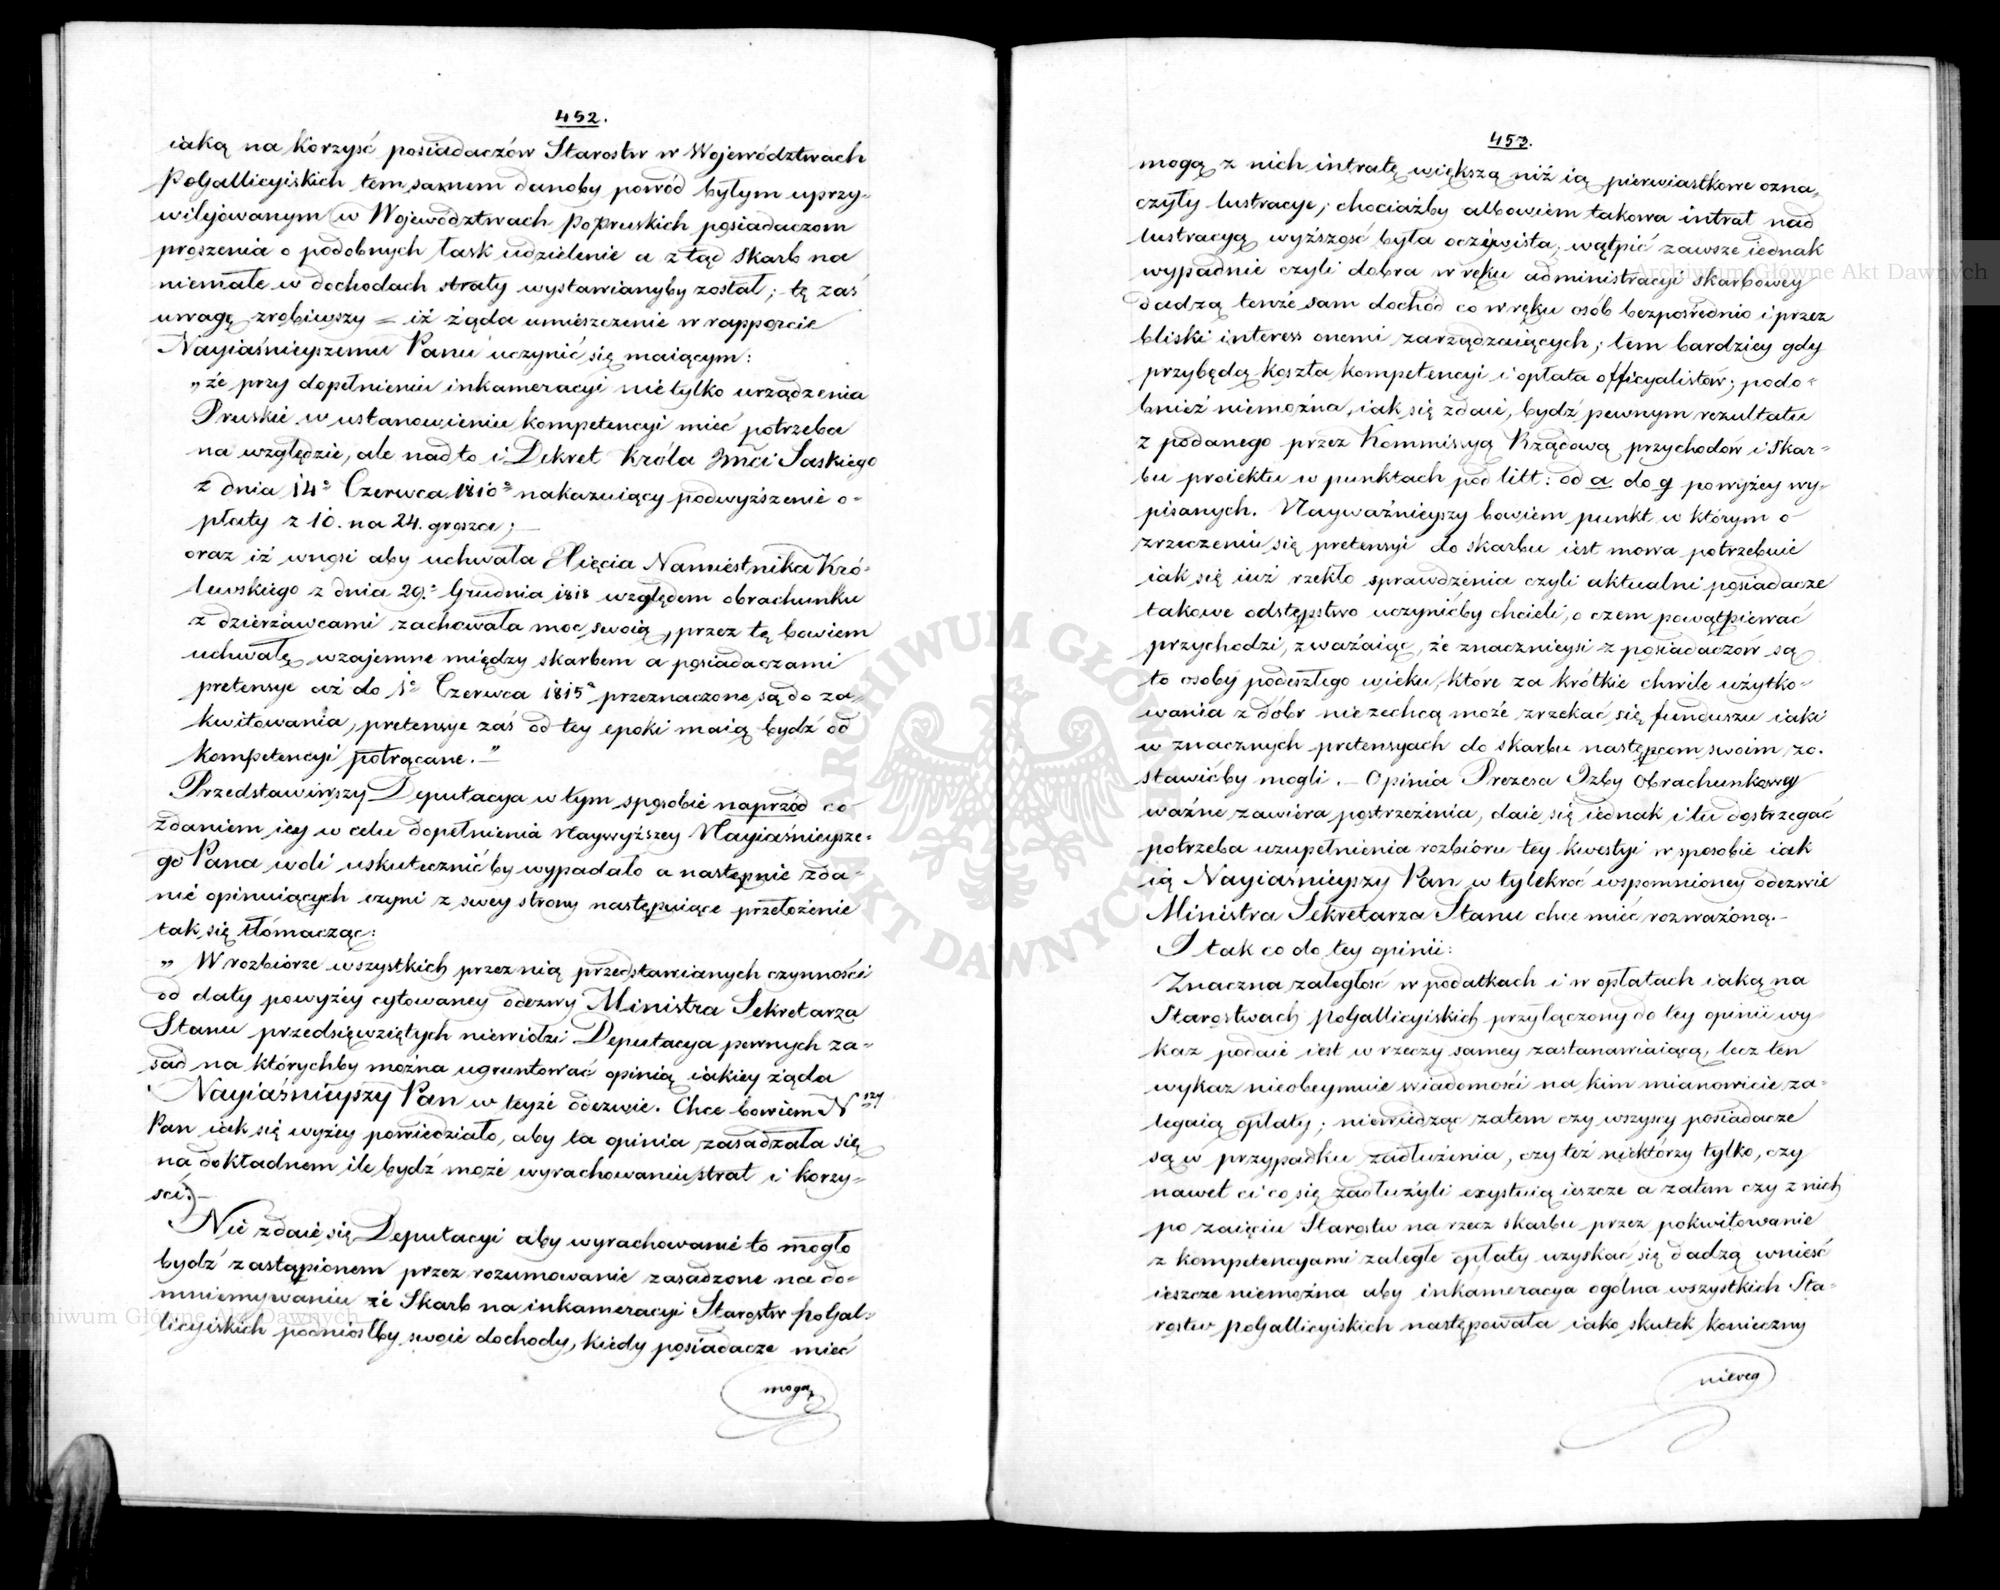 452.
iaką na korzyść posiadaczów Starostw w Województwach
PoGallicyiskich tem samem danoby powód byłym uprzy-
wilejowanym w Województwach Popruskich posiadaczom
proszenia o podobnych łask udzielenie a ztąd Skarb na
niemałe w dochodach straty wystawianyby został; tę zaś
uwagę zrobiwszy = iż żąda umieszczenie w rapporcie
Nayiaśnieyszemu Panu uczynić się maiącym:
„że przy dopełnieniu inkameracyi nietylko urządzenia
Pruskie w ustanowieniu kompetencyi mieć potrzeba
na względzie, ale nadto i Dekret Króla Jmci Saskiego
z dnia 14º Czerwca 1810º nakazuiący podwyższenie o-
płaty z 10. na 24. grosze;
oraz iż wnosi aby uchwała Xięcia Namiestnika Kró-
lewskiego z dnia 29º Grudnia 1818 względem obrachunku
z dzierżawcami zachowała moc swoią, przez tę bowiem
uchwałę wzajemne między skarbem a posiadaczami
pretensye aż do 1º Czerwca 1815º przeznaczone są do za-
kwitowania, pretensye zaś od tey epoki maią bydź od
kompetencyi potrącane.—”
Przedstawiwszy Deputacya w tym sposobie naprzód co
zdaniem iey w celu dopełnienia Naywyższey Nayiaśnieysze-
go Pana woli uskutecznić by wypadało a następnie zda-
nie opiniuiących czyni z swey strony następuiące przełożenie
tak się tłómacząc:
„ W rozbiorze wszystkich przez nią przedstawianych czynności
od daty powyżey cytowaney odezwy Ministra Sekretarza
Stanu przedsięwziętych niewidzi Deputacya pewnych za-
sad na którychby można ugruntować opinią iakiey żąda
Nayiaśnieyszy Pan w teyże odezwie. Chce bowiem N szy
Pan iak się wyżey powiedziało, aby ta opinia zasadzała się
na dokładnem ile bydź może wyrachowaniu strat i korzy-
ści.—
Nie zdaie się Deputacyi aby wyrachowanie to mogło
bydź zastąpionem przez rozumowanie zasadzone na do-
mniemywaniu że Skarb na inkameracyi Starostw poGal-
licyiskich podniosłby swoie dochody, kiedy posiadacze mieć
mogą
453.
mogą z nich intratę większą niż ią pierwiastkowe ozna-
czyły lustracye; chociażby albowiem takowa intrat nad
lustracyą wyższość była oczywista, wątpić zawsze iednak
wypadnie czyli dobra w ręku administracyi skarbowey
dadzą tenże sam dochód co w ręku osób bezpośrednio i przez
bliski interess onemi zarządzaiących; tem bardziey gdy
przybędą koszta kompetencyi i opłata officyalistów; podo-
bnież niemożna, iak się zdaie, bydź pewnym rezultatu
z podanego przez Kommissyą Rządową przychodów i Skar-
bu proiektu w punktach pod litt: od a do g powyżey wy-
pisanych. Nayważnieyszy bowiem punkt w którym o
zrzeczeniu się pretensyi do skarbu iest mowa potrzebuie
iak się iuż rzekło sprawdzenia czyli aktualni posiadacze
takowe odstępstwo uczynićby chcieli, o czem powątpiewać
przychodzi, zważaiąc, że znacznieysi z posiadaczów są
to osoby podeszłego wieku, które za krótkie chwile użytko-
wania z dóbr nie zechcą może zrzekać się funduszu iaki
w znacznych pretensyach do skarbu następcom swoim zo-
stawićby mogli.— Opinia Prezesa Izby Obrachunkowey
ważne zawiera postrzeżenia, daie się iednak i tu dostrzegać
potrzeba uzupełnienia rozbioru tey kwestyi w sposobie iak
ią Nayiaśnieyszy Pan w tylekroć wspomnioney odezwie
Ministra Sekretarza Stanu chce mieć rozważoną.—
I tak co do tey opinii:
Znaczna zaległość w podatkach i w opłatach iaką na
Starostwach poGallicyiskich przyłączony do tey opinii wy-
kaz podaie iest w rzeczy samey zastanawiaiącą, lecz ten
wykaz nieobeymuie wiadomości na kim mianowicie za-
legaią opłaty; niewidząc zatem czy wszyscy posiadacze
są w przypadku zadłużenia, czy też niektórzy tylko, czy
nawet ci co się zadłużyli exystuią ieszcze a zatem czy z nich
po zaięciu Starostw na rzecz skarbu przez pokwitowanie
z kompetencyami zaległe opłaty uzyskać się dadzą wnieść
ieszcze niemożna aby inkameracya ogólna wszystkich Sta-
rostw poGallicyiskich następowała iako skutek konieczny
niereg
ARCHIWUM GŁÓWNE AKT DAWNYCH
Archiwum Główne Akt Dawnych
Archiwum Główne Akt Dawnych